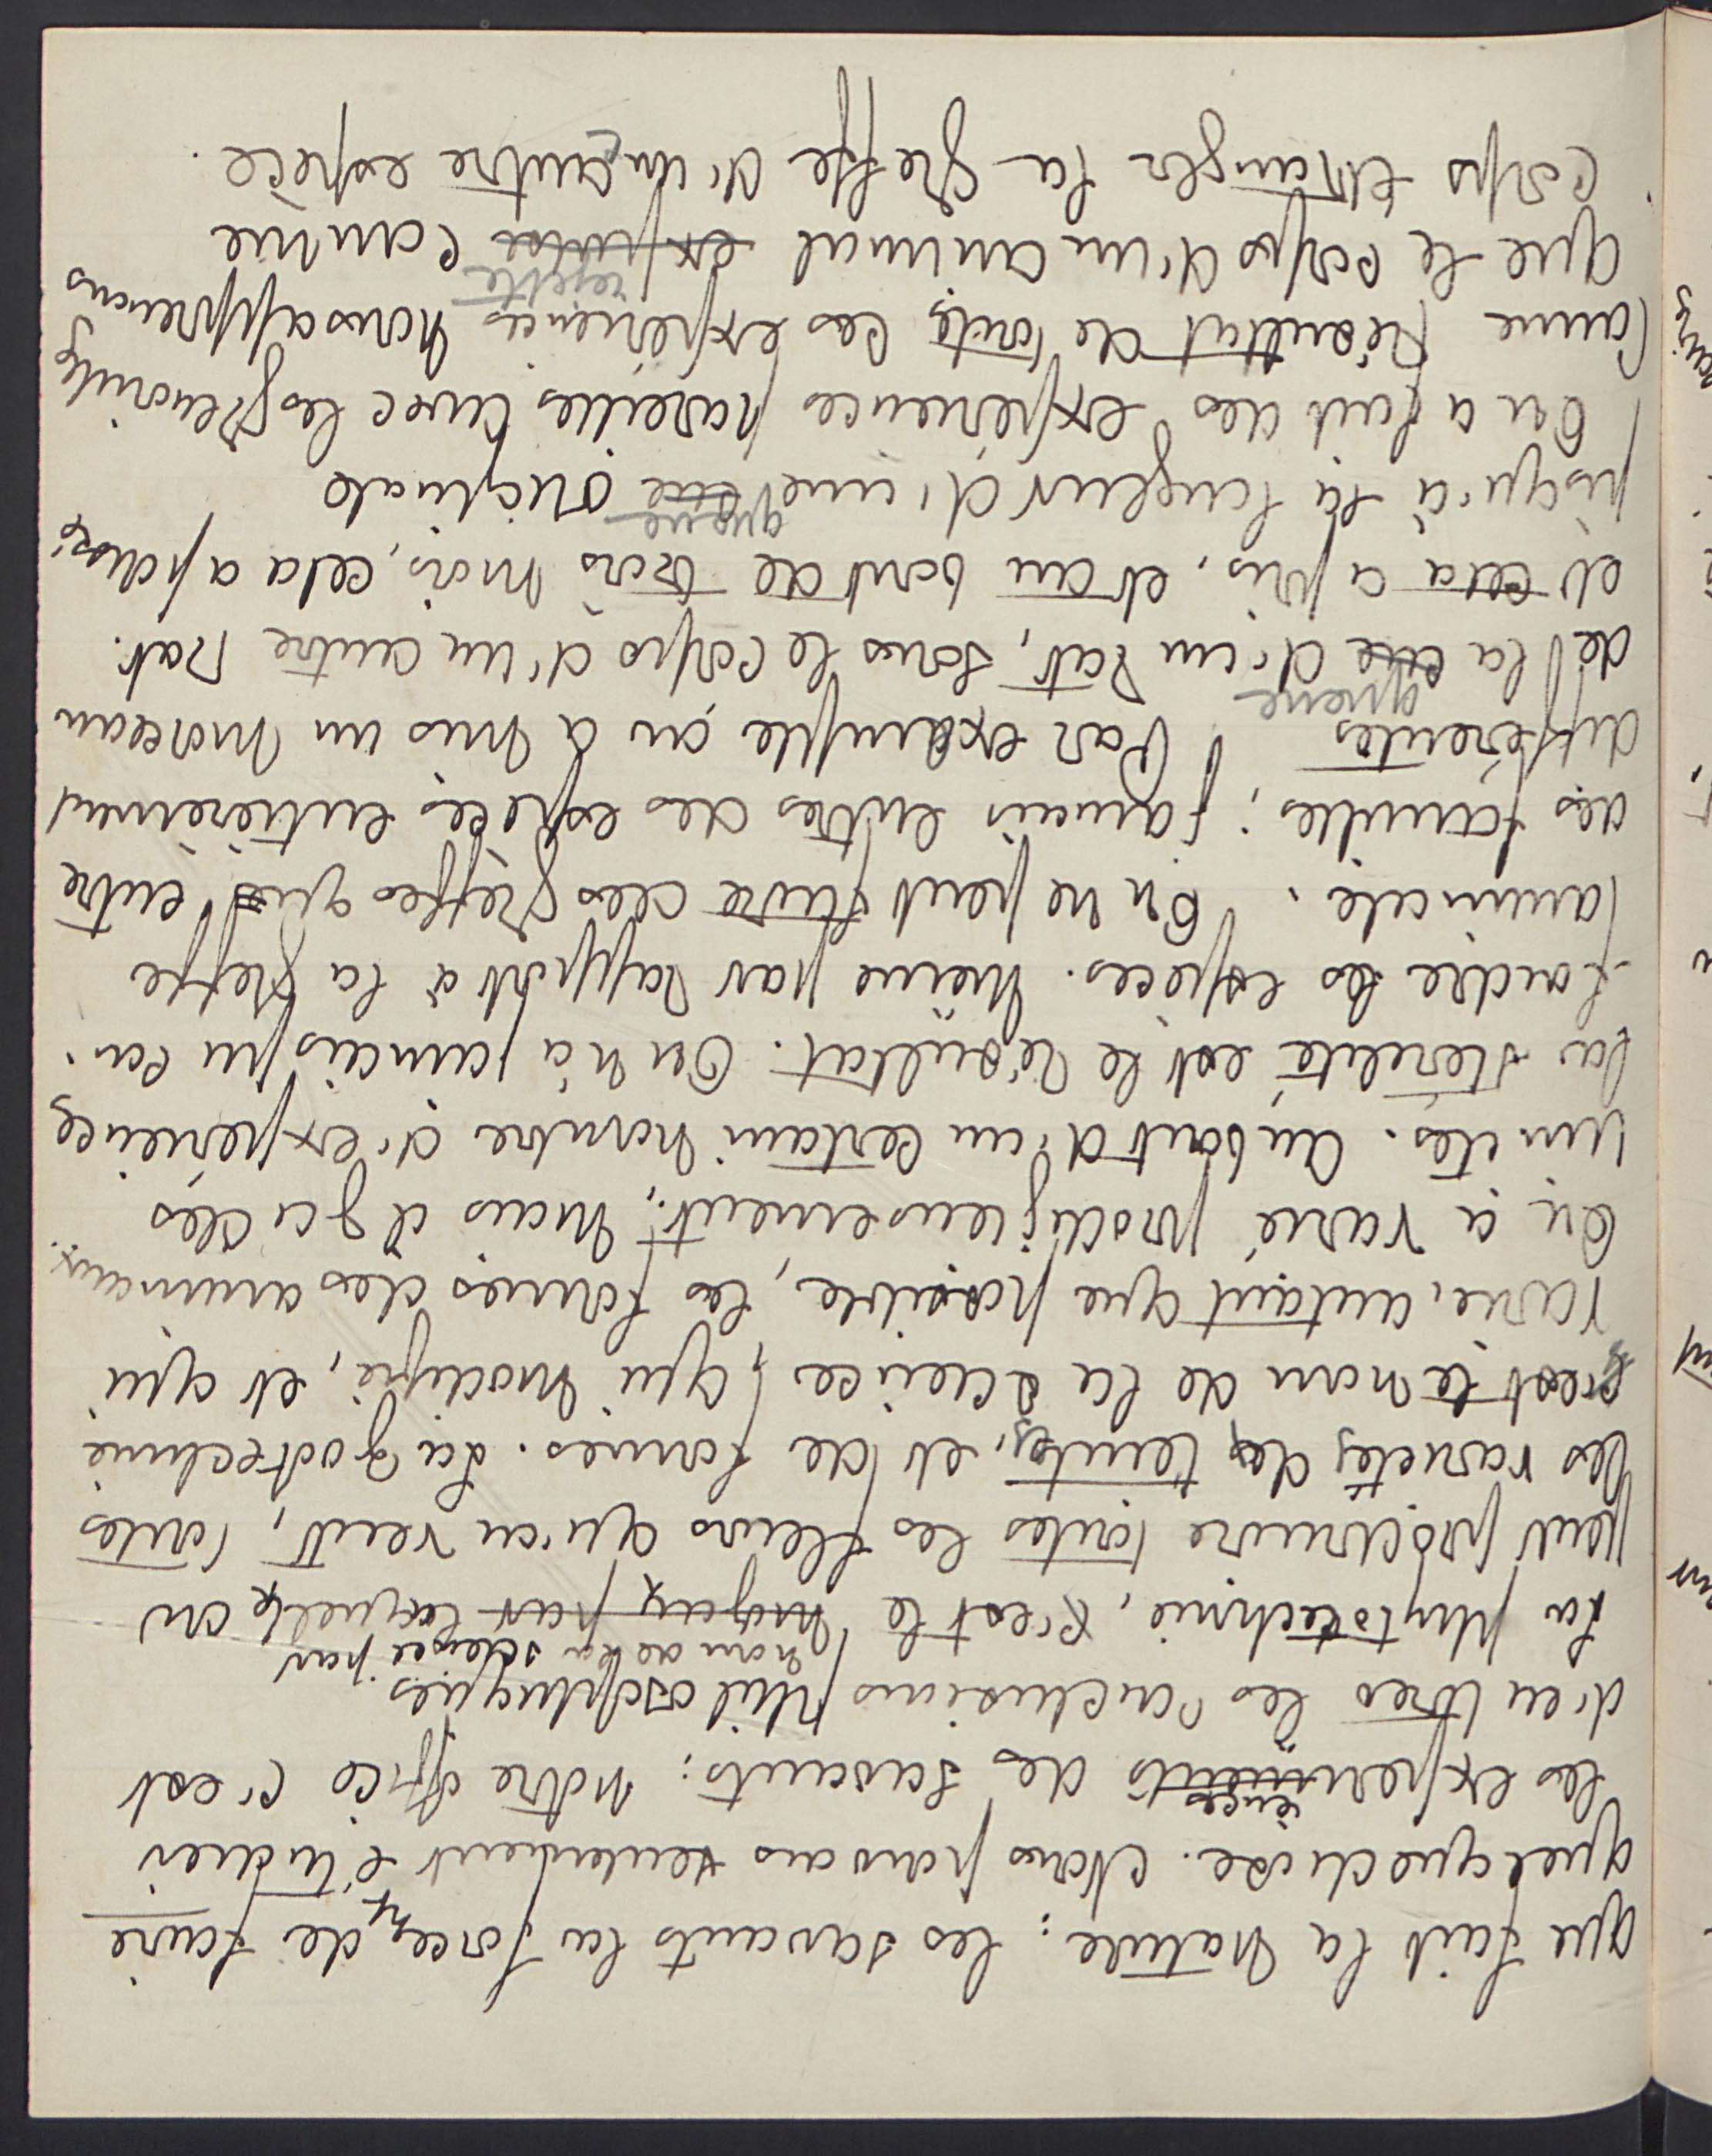 que fait la nature : les savants la forcent de faire
quelque chose. Nous pouvons seulement étudier
les experiments iences des savants : notre office c'est
d'en tirer les conclusions philosophiques
nom de la science par
La phytotechnie, c'est le moyen par laquelle on
peut produire toutes les fleurs qu'on veut, toutes
les variétés de teintes, et de formes. La zootechnie
c'est le nom de la science, qui modifie, et qui
varie, autant que possible, les formes des animaux.
On a varié prodigieusement ; mais il y a des
limites. Au bout d'un certain nombre d'expérience
la stérilité est le résultat. On n'a jamais pu con-
fondre les espèces. Même par rapport à la greffe
animale. On ne peut faire des greffes que entre
des familles ; jamais entres des espèces entièrement
différentes. Par exemple on a mis un morceau
queue
de la cue d'un rat, sous le corps d'un autre rat.
et cela a pris, et au bout de trois mois, cela a poussé
queue
jusqu'à la longeur d'une cue originale
On a fait des expériences pareilles avec les grenouilles
comme résultat de toutes ces expériences nous apprenons
rejette
que le corps d'un animal expulse comme
corps étranger la greffe d'un autre espèce.